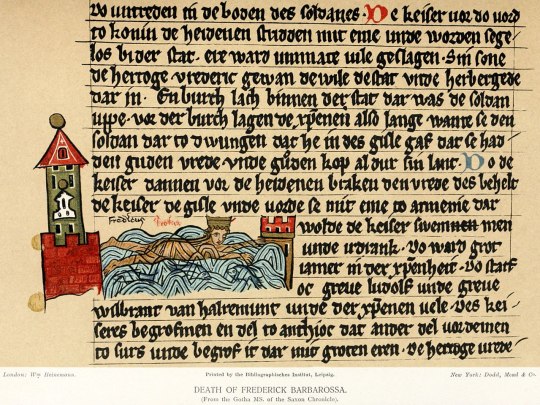 vo vntreden in de boden des soldanes · De keiser vor do vord
to konin de heidenen stridden mit eme unde worden sege
los bi der stat · ere ward unmate vile geslagen · Sin sone
de hertoge vrederic gewan de wile de stat unde herbergede
dar in · En burch lach binnen der stat dar was de soldan
uppe · vor der burch lagen de xpenen also lange wante se den
soldan dar to dwungen dat he in des gisle gaf dat se had
den guden vrede unde guden kop al dur sin lant · Do de
keiser dannen vor de heidenen braken den vrede des behelt
de keiser de gisle unde vorde se mit eme to armenie dar
Fredricus
wolde de keiser swemmen
unde irdrank · Do ward grot
iamer in der xpenheit · Do starf
oc greve ludolf unde greve
wilbrant van halremunt unde der xpenen vele · Des kei
seres begrofmen en del to anthioc dat ander del vordemen
to surs unde begrof it dar mit groten eren · De hertoge vrede
London: Wm Heinemann.
Printed by the Bibliographisches Institut, Leipzig.
New York: Dodd, Mead & Co.
DEATH OF FREDERICK BARBAROSSA.
(From the Gotha MS. of the Saxon Chronicle).